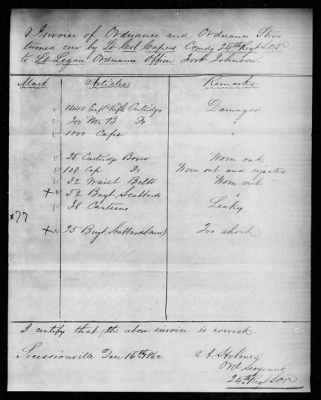 Invoice of Ordnance and Ordnance Stores
turned over by Lt Col Capers Comdg 24th Regt S.C.V.
to Lt Legare Ordnance Officer Fort Johnson.
Mark Articles Remarks
Enfd Rifle Cartridges Damaged
200 M. B. Do "
1000 Caps "
35 Cartridge Boxes Worn out
108 Cap Do Worn out and
32 Waist Belts Worn out
+ 52 Bayt Scabbards
38 Canteens Leaky
x77
+ 25 Bayt Scabbards Too short
I certify that the above invoice is correct
Secessionville Dec 16th 1862
A. Holmes
Ord Sergeant
24th Regt SCV